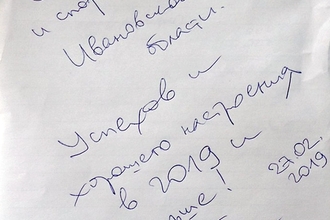 и спор
Ивановской
области.
Успехов и
хорошего настроения
в 2019 и
27.02.
2019